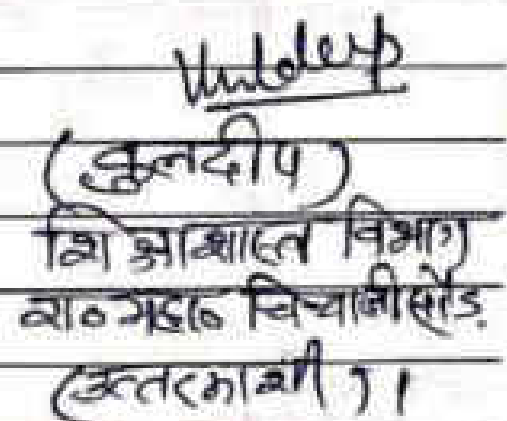 Kuldeep
(कुलदीप)
शिक्षाशास्त्र विभाग
रा० महा० चिन्यालीसौड़
(उत्तरकाशी)।